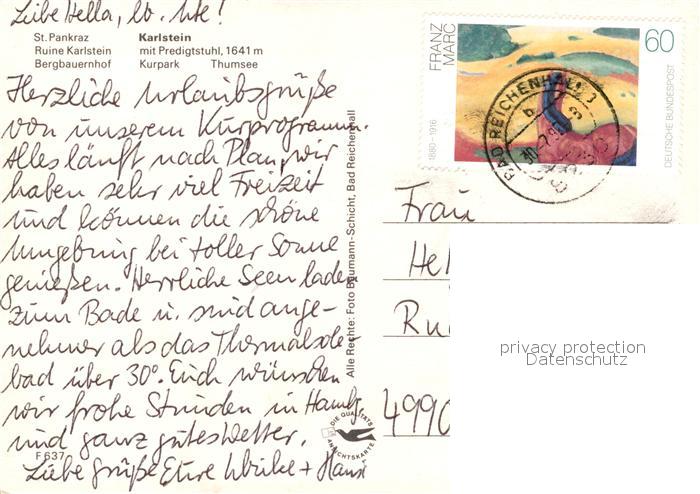 Liebe Hella, lb. Ute!
St. Pankraz
Ruine Karlstein
Bergbauernhof
Karlstein
mit Predigtstuhl, 1641 m
Kurpark Thumsee
Herzliche Urlaubsgrüße
von unserem Kurprogramm.
Alles läuft nach Plan, wir
haben sehr viel Freizeit
und können die schöne
Umgebung bei toller Sonne
genießen. Herrliche Seen laden
zum Bade u. sind ange-
nehmer als das Thermalsole-
bad über 30°. Euch wünschen
wir frohe Stunden in
und ganz gutes Wetter.
Liebe Grüße Eure + Hans
F 637
Alle Rechte: Foto Baumann-Schicht, Bad Reichenhall
DIE QUALITÄTS
ANSICHTSKARTE
FRANZ
MARC
1880-1916
60
DEUTSCHE BUNDESPOST
BAD REICHENHALL
Frau
He
Ru
4990
privacy protection
Datenschutz